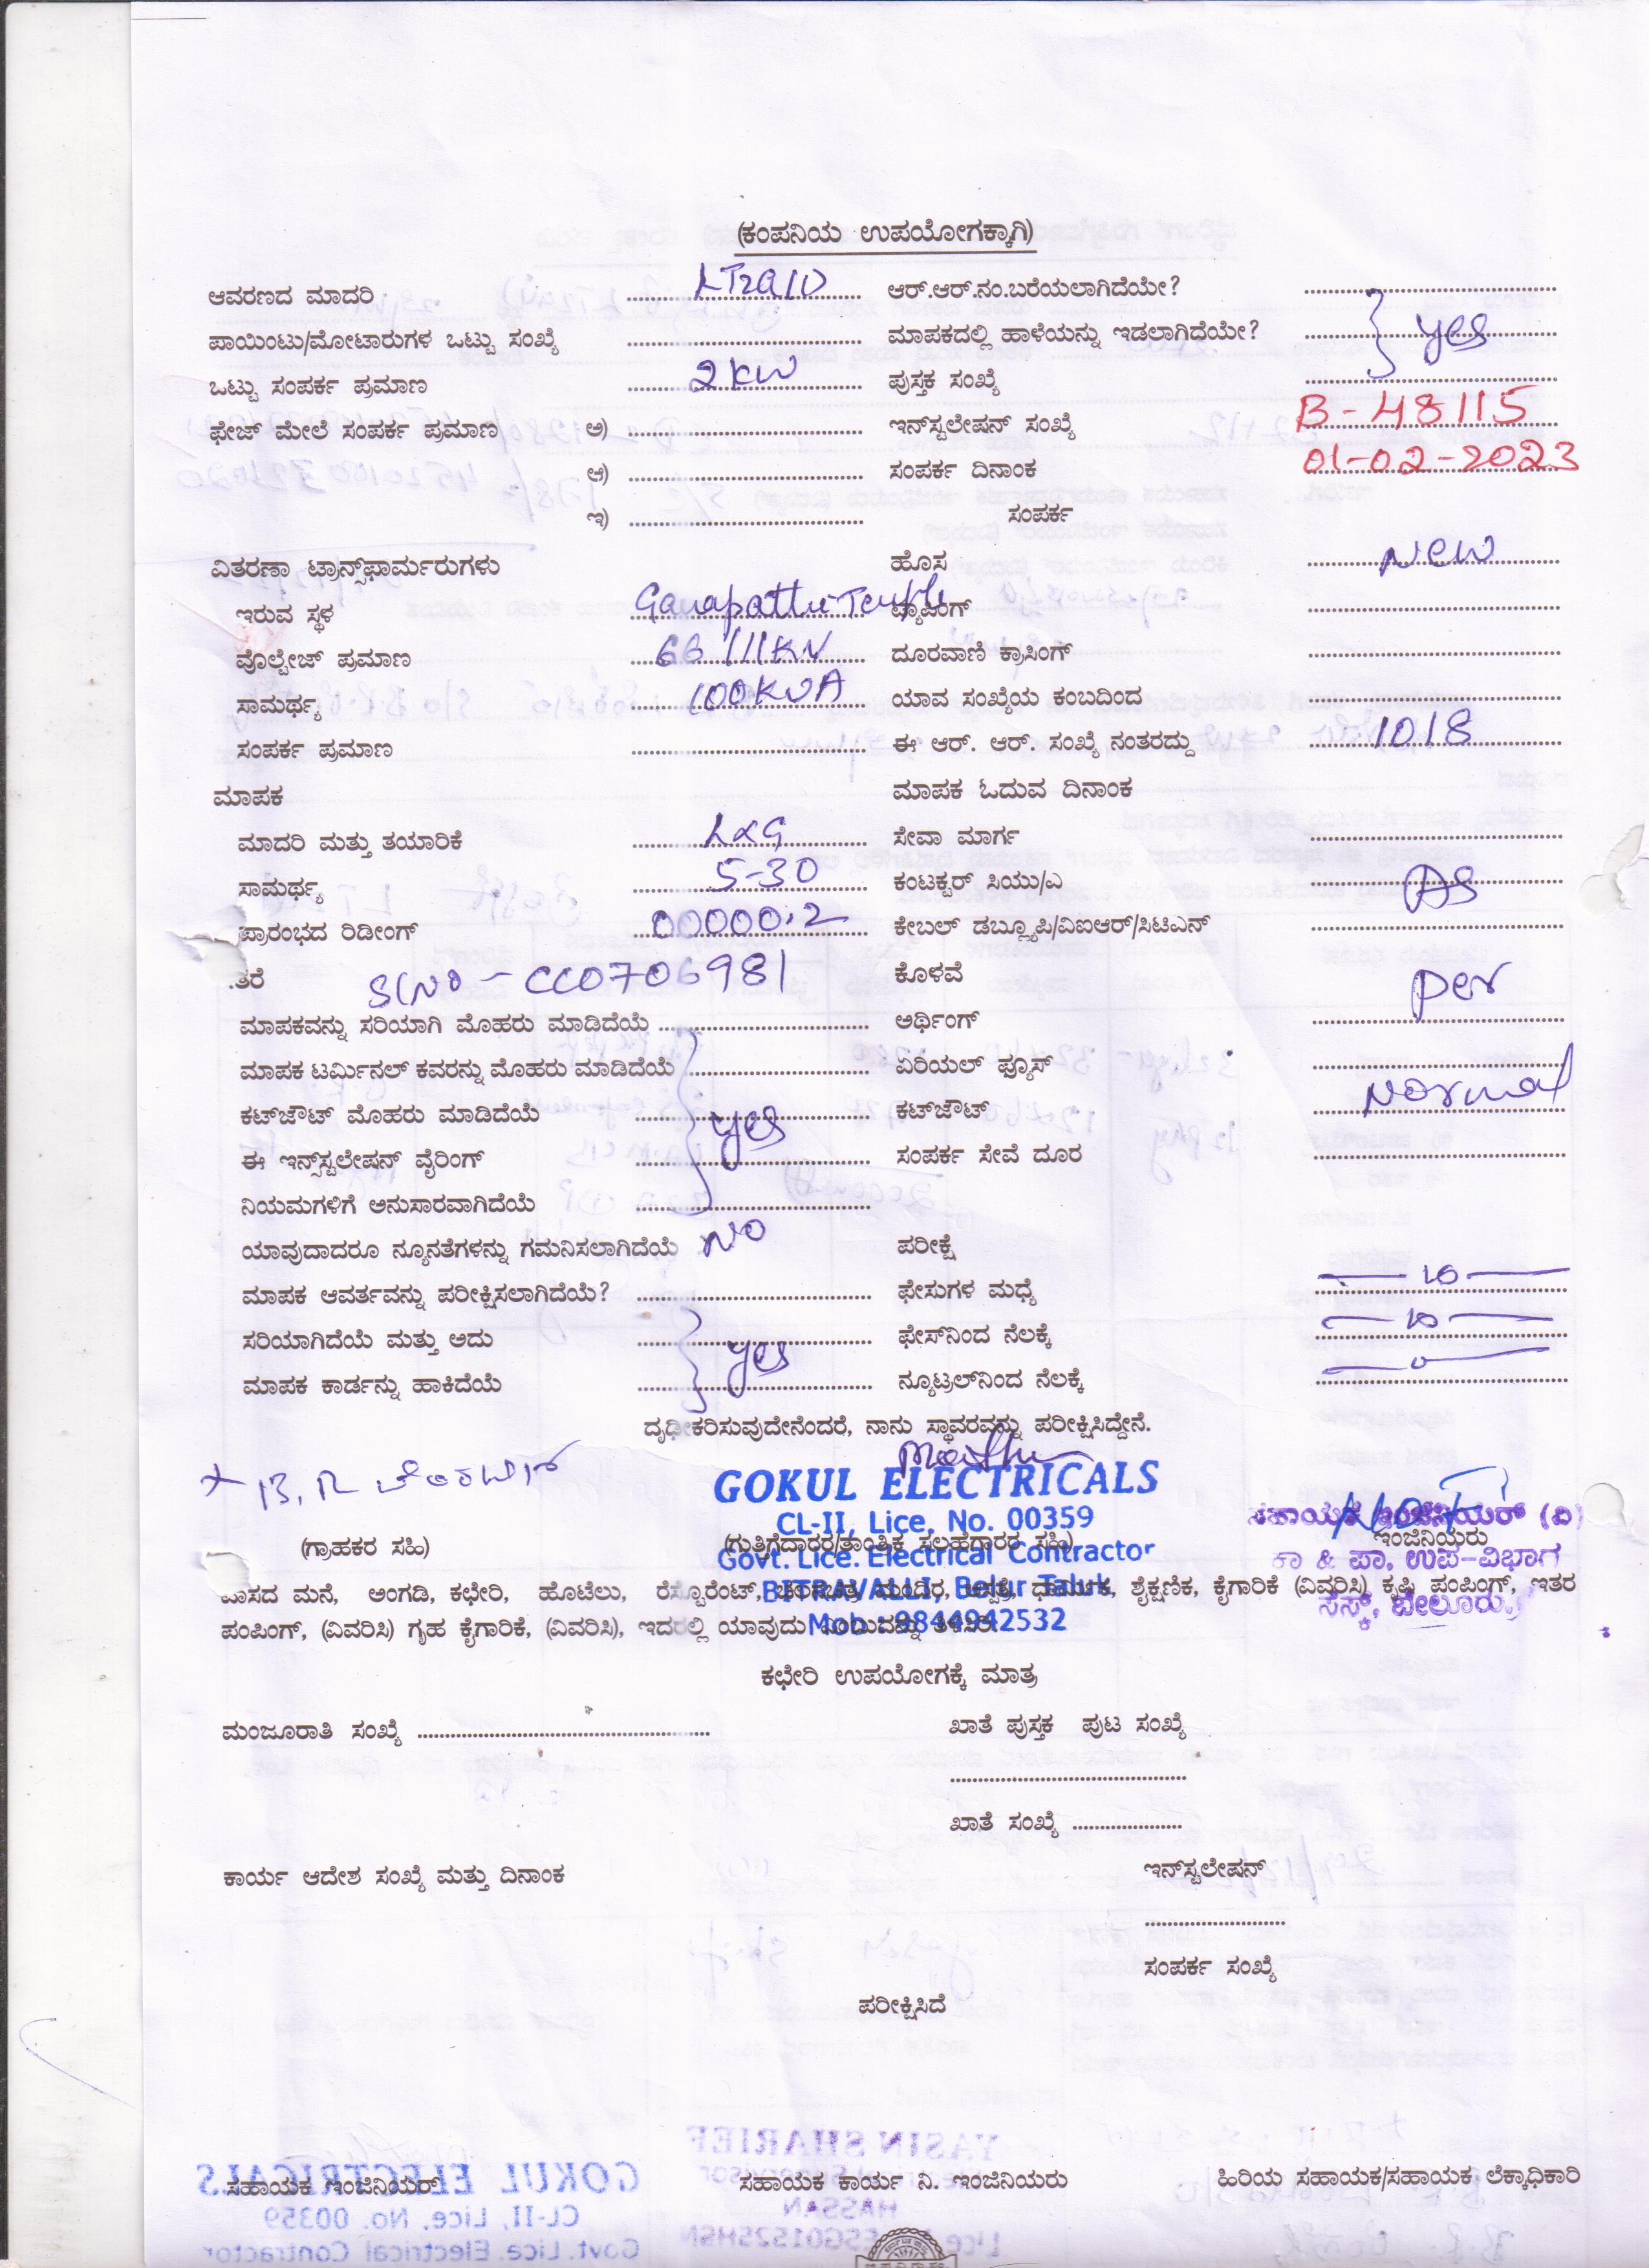 (ಕಂಪನಿಯ ಉಪಯೋಗಕ್ಕಾಗಿ)
ಆವರಣದ ಮಾದರಿ LT2a(i) ಆರ್.ಆರ್.ನಂ.ಬರೆಯಲಾಗಿದೆಯೇ?
ಪಾಯಿಂಟು/ಮೋಟಾರುಗಳ ಒಟ್ಟು ಸಂಖ್ಯೆ ಮಾಪಕದಲ್ಲಿ ಹಾಳೆಯನ್ನು ಇಡಲಾಗಿದೆಯೇ? yes
ಒಟ್ಟು ಸಂಪರ್ಕ ಪ್ರಮಾಣ 2KW ಪುಸ್ತಕ ಸಂಖ್ಯೆ
ಫೇಜ್ ಮೇಲೆ ಸಂಪರ್ಕ ಪ್ರಮಾಣ ಅ) ಇನ್‌ಸ್ಟಲೇಷನ್ ಸಂಖ್ಯೆ B-48115
ಆ) ಸಂಪರ್ಕ ದಿನಾಂಕ 01-02-2023
ಇ) ಸಂಪರ್ಕ
ವಿತರಣಾ ಟ್ರಾನ್ಸ್‌ಫಾರ್ಮರುಗಳು ಹೊಸ New
ಇರುವ ಸ್ಥಳ Ganapathi Temple ಟ್ಯಾಪಿಂಗ್
ವೊಲ್ಟೇಜ್ ಪ್ರಮಾಣ 66/11KV ದೂರವಾಣಿ ಕ್ರಾಸಿಂಗ್
ಸಾಮರ್ಥ್ಯ 100KVA ಯಾವ ಸಂಖ್ಯೆಯ ಕಂಬದಿಂದ
ಸಂಪರ್ಕ ಪ್ರಮಾಣ ಈ ಆರ್. ಆರ್. ಸಂಖ್ಯೆ ನಂತರದ್ದು 1018
ಮಾಪಕ ಮಾಪಕ ಓದುವ ದಿನಾಂಕ
ಮಾದರಿ ಮತ್ತು ತಯಾರಿಕೆ L&G ಸೇವಾ ಮಾರ್ಗ
ಸಾಮರ್ಥ್ಯ 5-30 ಕಂಟಕ್ಟರ್ ಸಿಯು/ಎ As
ಪ್ರಾರಂಭದ ರಿಡೀಂಗ್ 00000.2 ಕೇಬಲ್ ಡಬ್ಲ್ಯೂಪಿ/ವಿಐಆರ್/ಸಿಟಿಎನ್
.ತರೆ Sl No - CC0706981 ಕೊಳವೆ per
ಮಾಪಕವನ್ನು ಸರಿಯಾಗಿ ಮೊಹರು ಮಾಡಿದೆಯೆ ಅರ್ಥಿಂಗ್
ಮಾಪಕ ಟರ್ಮಿನಲ್ ಕವರನ್ನು ಮೊಹರು ಮಾಡಿದೆಯೆ ಏರಿಯಲ್ ಫ್ಯೂಸ್
ಕಟ್‌ಔಟ್ ಮೊಹರು ಮಾಡಿದೆಯೆ yes ಕಟ್‌ಔಟ್ Normal
ಈ ಇನ್‌ಸ್ಟಲೇಷನ್ ವೈರಿಂಗ್ ಸಂಪರ್ಕ ಸೇವೆ ದೂರ
ನಿಯಮಗಳಿಗೆ ಅನುಸಾರವಾಗಿದೆಯೆ
ಯಾವುದಾದರೂ ನ್ಯೂನತೆಗಳನ್ನು ಗಮನಿಸಲಾಗಿದೆಯೆ No ಪರೀಕ್ಷೆ
ಮಾಪಕ ಆವರ್ತವನ್ನು ಪರೀಕ್ಷಿಸಲಾಗಿದೆಯೆ? ಫೇಸುಗಳ ಮಧ್ಯೆ
ಸರಿಯಾಗಿದೆಯೆ ಮತ್ತು ಅದು yes ಫೇಸ್‌ನಿಂದ ನೆಲಕ್ಕೆ
ಮಾಪಕ ಕಾರ್ಡನ್ನು ಹಾಕಿದೆಯೆ ನ್ಯೂಟ್ರಲ್‌ನಿಂದ ನೆಲಕ್ಕೆ
ದೃಢೀಕರಿಸುವುದೇನೆಂದರೆ, ನಾನು ಸ್ಥಾವರವನ್ನು ಪರೀಕ್ಷಿಸಿದ್ದೇನೆ.
GOKUL ELECTRICALS
CL-II, Lice, No. 00359 ಸಹಾಯಕ ಇಂಜಿನಿಯರ್ (ವಿ)
(ಗ್ರಾಹಕರ ಸಹಿ) (ಗುತ್ತಿಗೆದಾರರ/ತಾಂತ್ರಿಕ ಸಲಹೆಗಾರರ ಸಹಿ) ಇಂಜಿನಿಯರು
Govt. Lice. Electrical Contractor ಕಾ & ಪಾ, ಉಪ-ವಿಭಾಗ
BITRAVALLI, Belur Taluk. ಸೆಸ್ಕ್, ಬೇಲೂರು
Mob : 9844942532
ವಾಸದ ಮನೆ, ಅಂಗಡಿ, ಕಛೇರಿ, ಹೊಟೆಲು, ರೆಸ್ಟೊರೆಂಟ್, ಶೈಕ್ಷಣಿಕ, ಕೈಗಾರಿಕೆ (ವಿವರಿಸಿ) ಕೃಷಿ ಪಂಪಿಂಗ್, ಇತರ
ಪಂಪಿಂಗ್, (ವಿವರಿಸಿ) ಗೃಹ ಕೈಗಾರಿಕೆ, (ವಿವರಿಸಿ), ಇದರಲ್ಲಿ ಯಾವುದು
ಕಛೇರಿ ಉಪಯೋಗಕ್ಕೆ ಮಾತ್ರ
ಮಂಜೂರಾತಿ ಸಂಖ್ಯೆ ಖಾತೆ ಪುಸ್ತಕ ಪುಟ ಸಂಖ್ಯೆ
ಖಾತೆ ಸಂಖ್ಯೆ
ಕಾರ್ಯ ಆದೇಶ ಸಂಖ್ಯೆ ಮತ್ತು ದಿನಾಂಕ ಇನ್‌ಸ್ಟಲೇಷನ್
ಸಂಪರ್ಕ ಸಂಖ್ಯೆ
ಪರೀಕ್ಷಿಸಿದೆ
ಸಹಾಯಕ ಇಂಜಿನಿಯರ್ ಸಹಾಯಕ ಕಾರ್ಯ ನಿ. ಇಂಜಿನಿಯರು ಹಿರಿಯ ಸಹಾಯಕ/ಸಹಾಯಕ ಲೆಕ್ಕಾಧಿಕಾರಿ